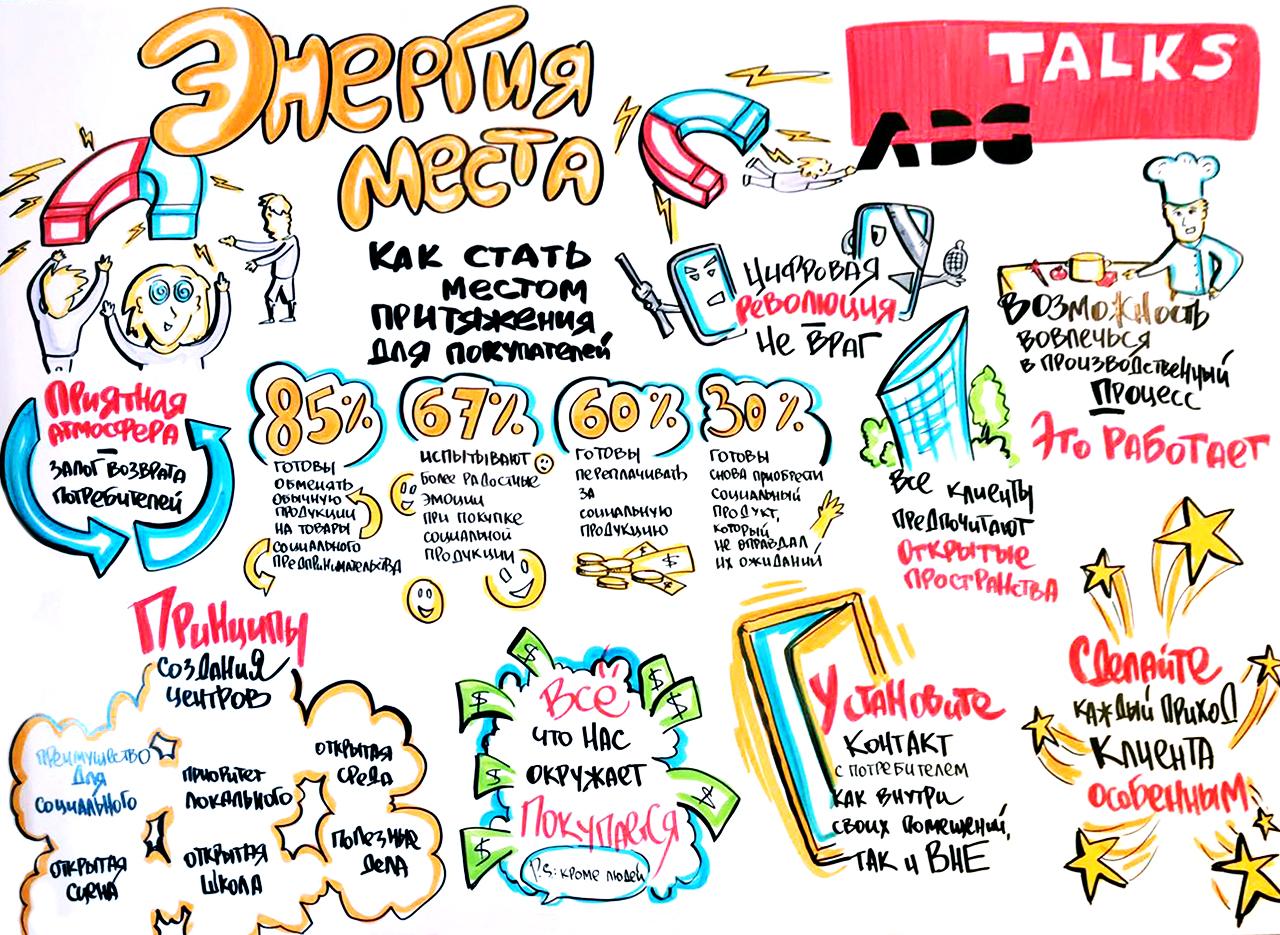 Энергия
места
TALKS
ADG
Как стать
местом
притяжения
для покупателей
Цифровая
революция
не враг
Возможность
вовлечься
в производственный
процесс
Это работает
Приятная
атмосфера
–
залог возврата
потребителей
85%
готовы
обменять
обычную
продукции
на товары
социального
предпринимательства
67%
испытывают
более радостные
эмоции
при покупке
социальной
продукции
60%
готовы
переплачивать
за
социальную
продукцию
30%
готовы
снова приобрести
социальный
продукт,
который
не оправдал
их ожиданий
Все клиенты
предпочитают
открытые
пространства
Принципы
создания
центров
преимущество
для
социального
приоритет
локального
открытая
среда
открытая
сцена
открытая
школа
полезные
дела
Всё
что нас
окружает
покупается
P.S: кроме людей
Установите
контакт
с потребителем
как внутри
своих помещений,
так и вне
Сделайте
каждый приход
клиента
особенным
$
$
$
$
$
$
$
$
$